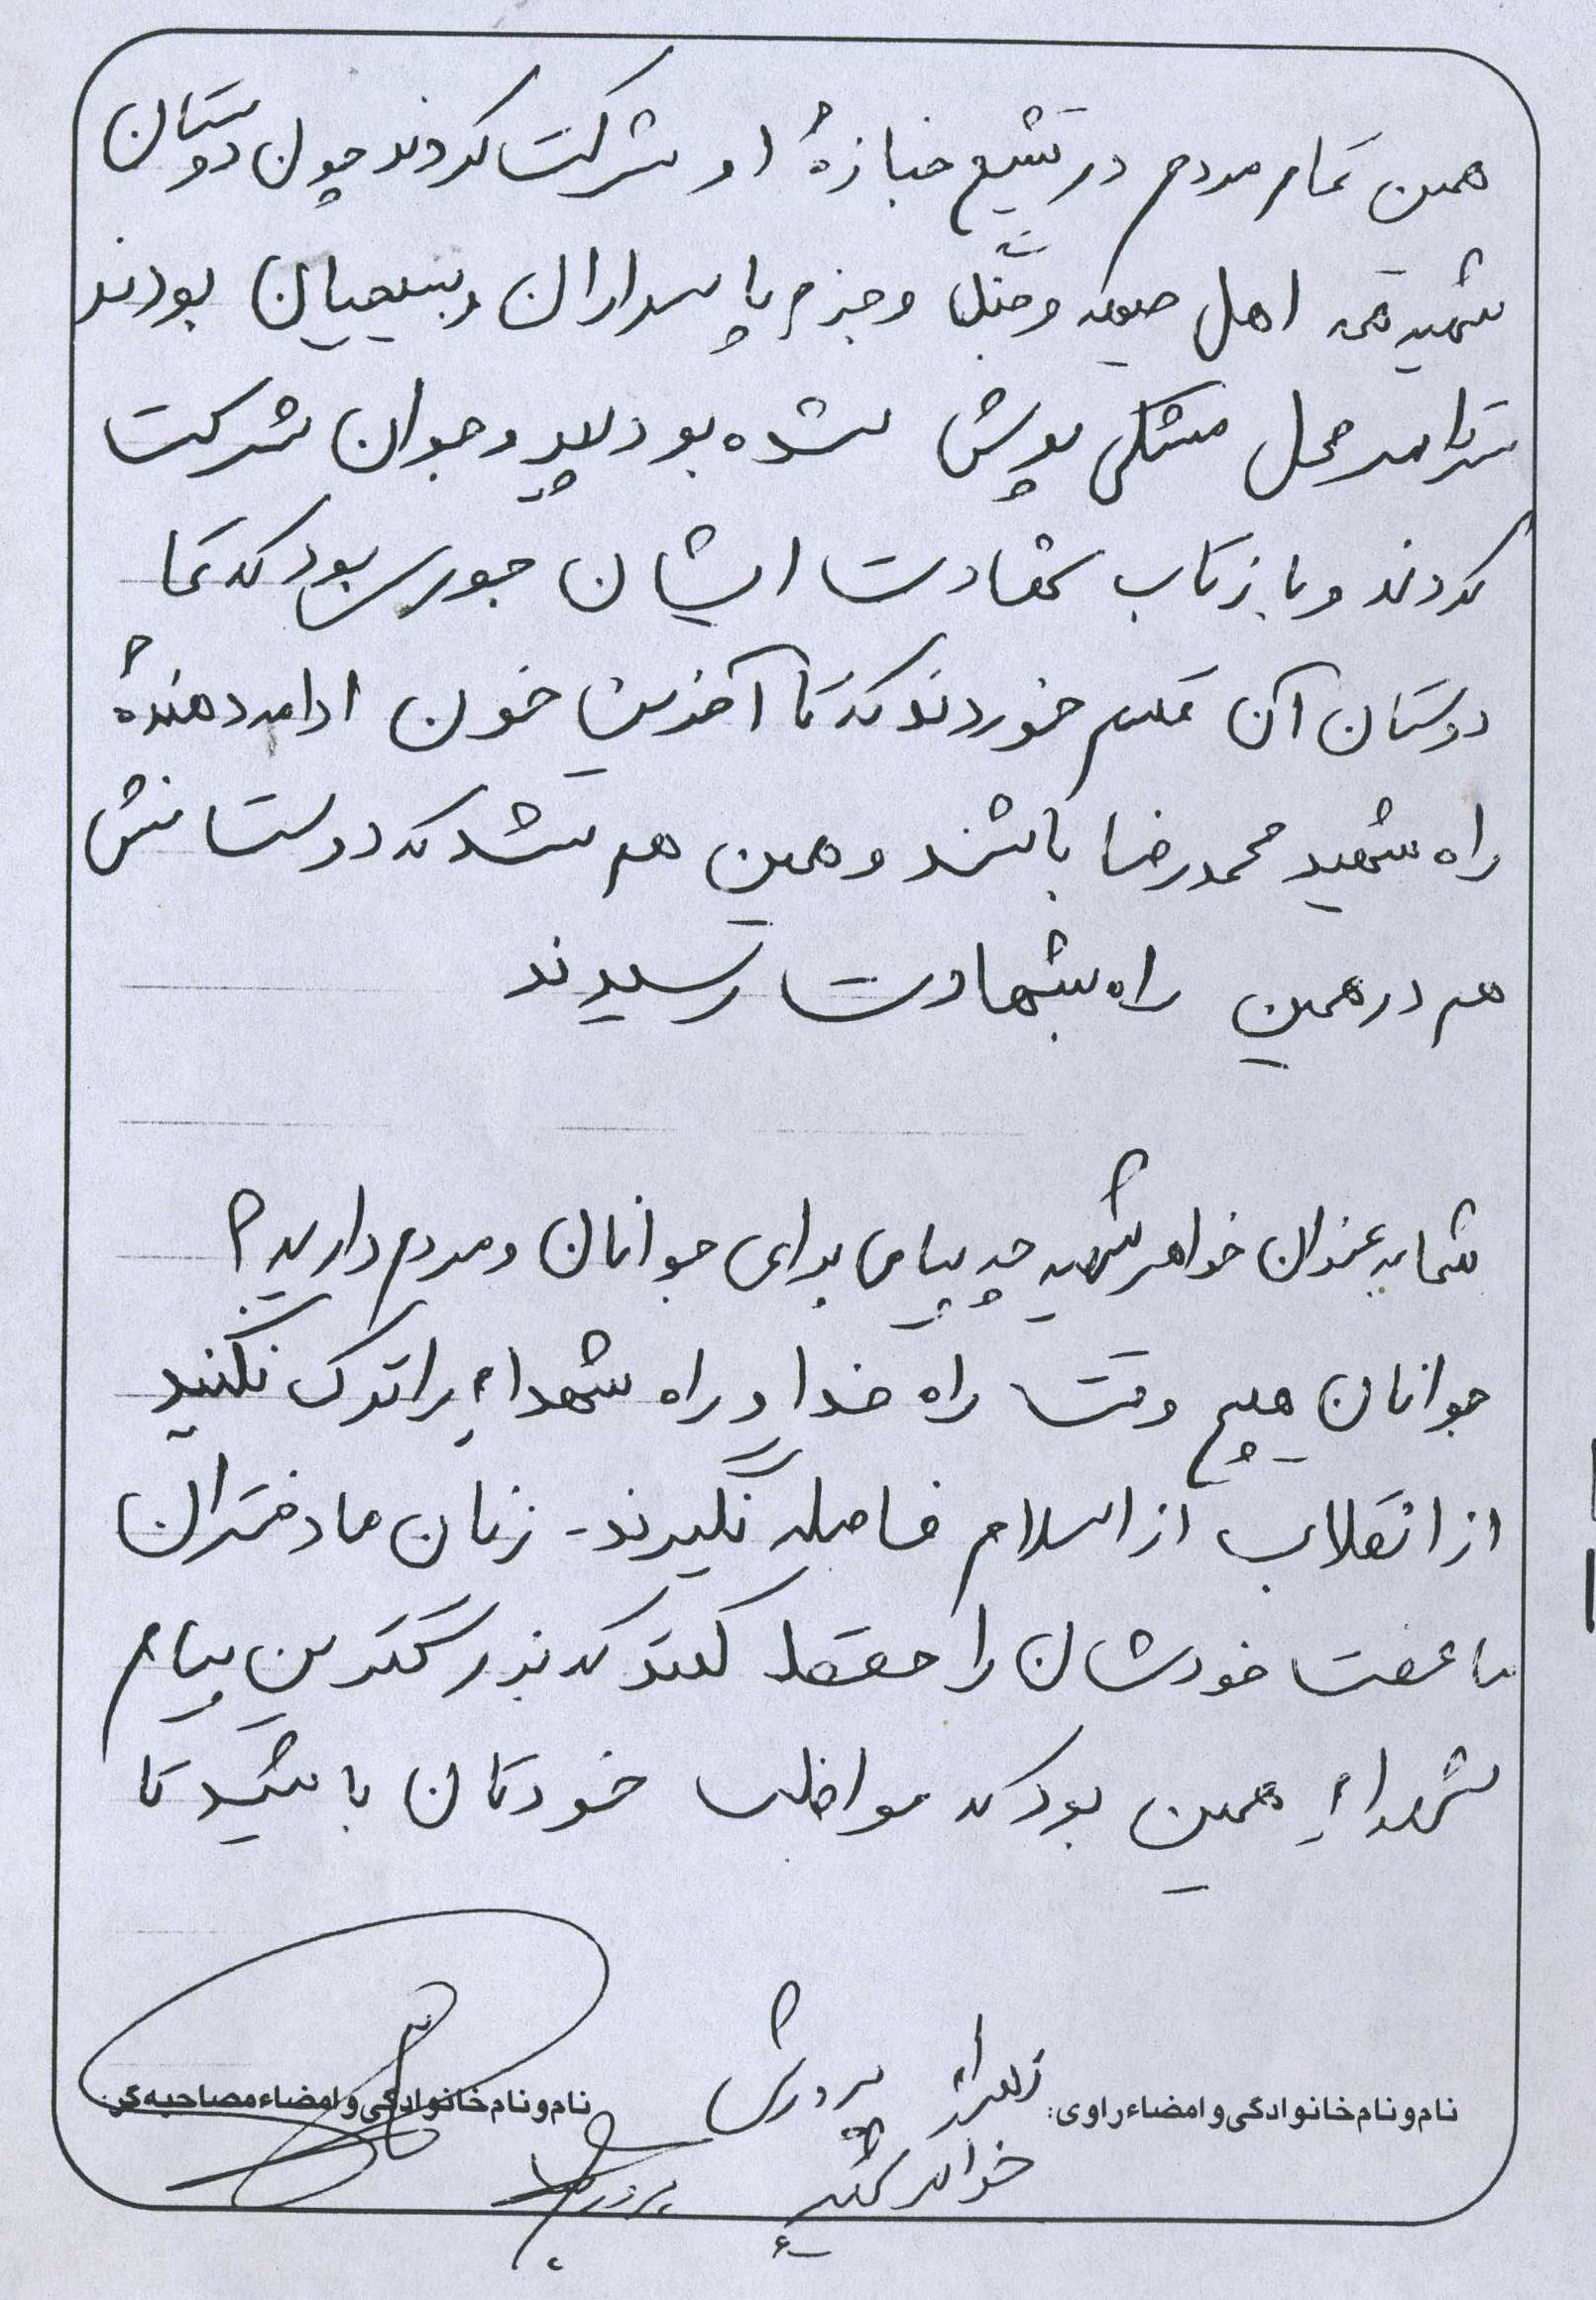 همین تمام مردم در تشیع جنازهٔ او شرکت کردند چون دوستان
شهید همه اهل جبهه و جنگ و جزء پاسداران و بسیجیان بودند
سرتاسر محل مشکی پوش شده بود پیر و جوان شرکت
کردند و بازتاب شهادت ایشان جوری بود که تما
دوستان آن قسم خوردند که تا آخرین خون ادامه دهندهٔ
راه شهید محمدرضا باشند و همین هم شد که دوستانش
هم در همین راه بشهادت رسیدند
شما به عنوان خواهر شهید چه پیامی برای جوانان و مردم دارید؟
جوانان هیچ وقت راه خدا و راه شهداء را ترک نکنید
از انقلاب از اسلام فاصله نگیرند - زنان ما دختران
ما عفت خودشان را حفظ کنند که بزرگترین پیام
شهداء همین بود که مواظب خودتان باشید تا
نام و نام خانوادگی و امضاء راوی: زهرا پرورش
نام و نام خانوادگی و امضاء مصاحبه گر:
خواهر شهید